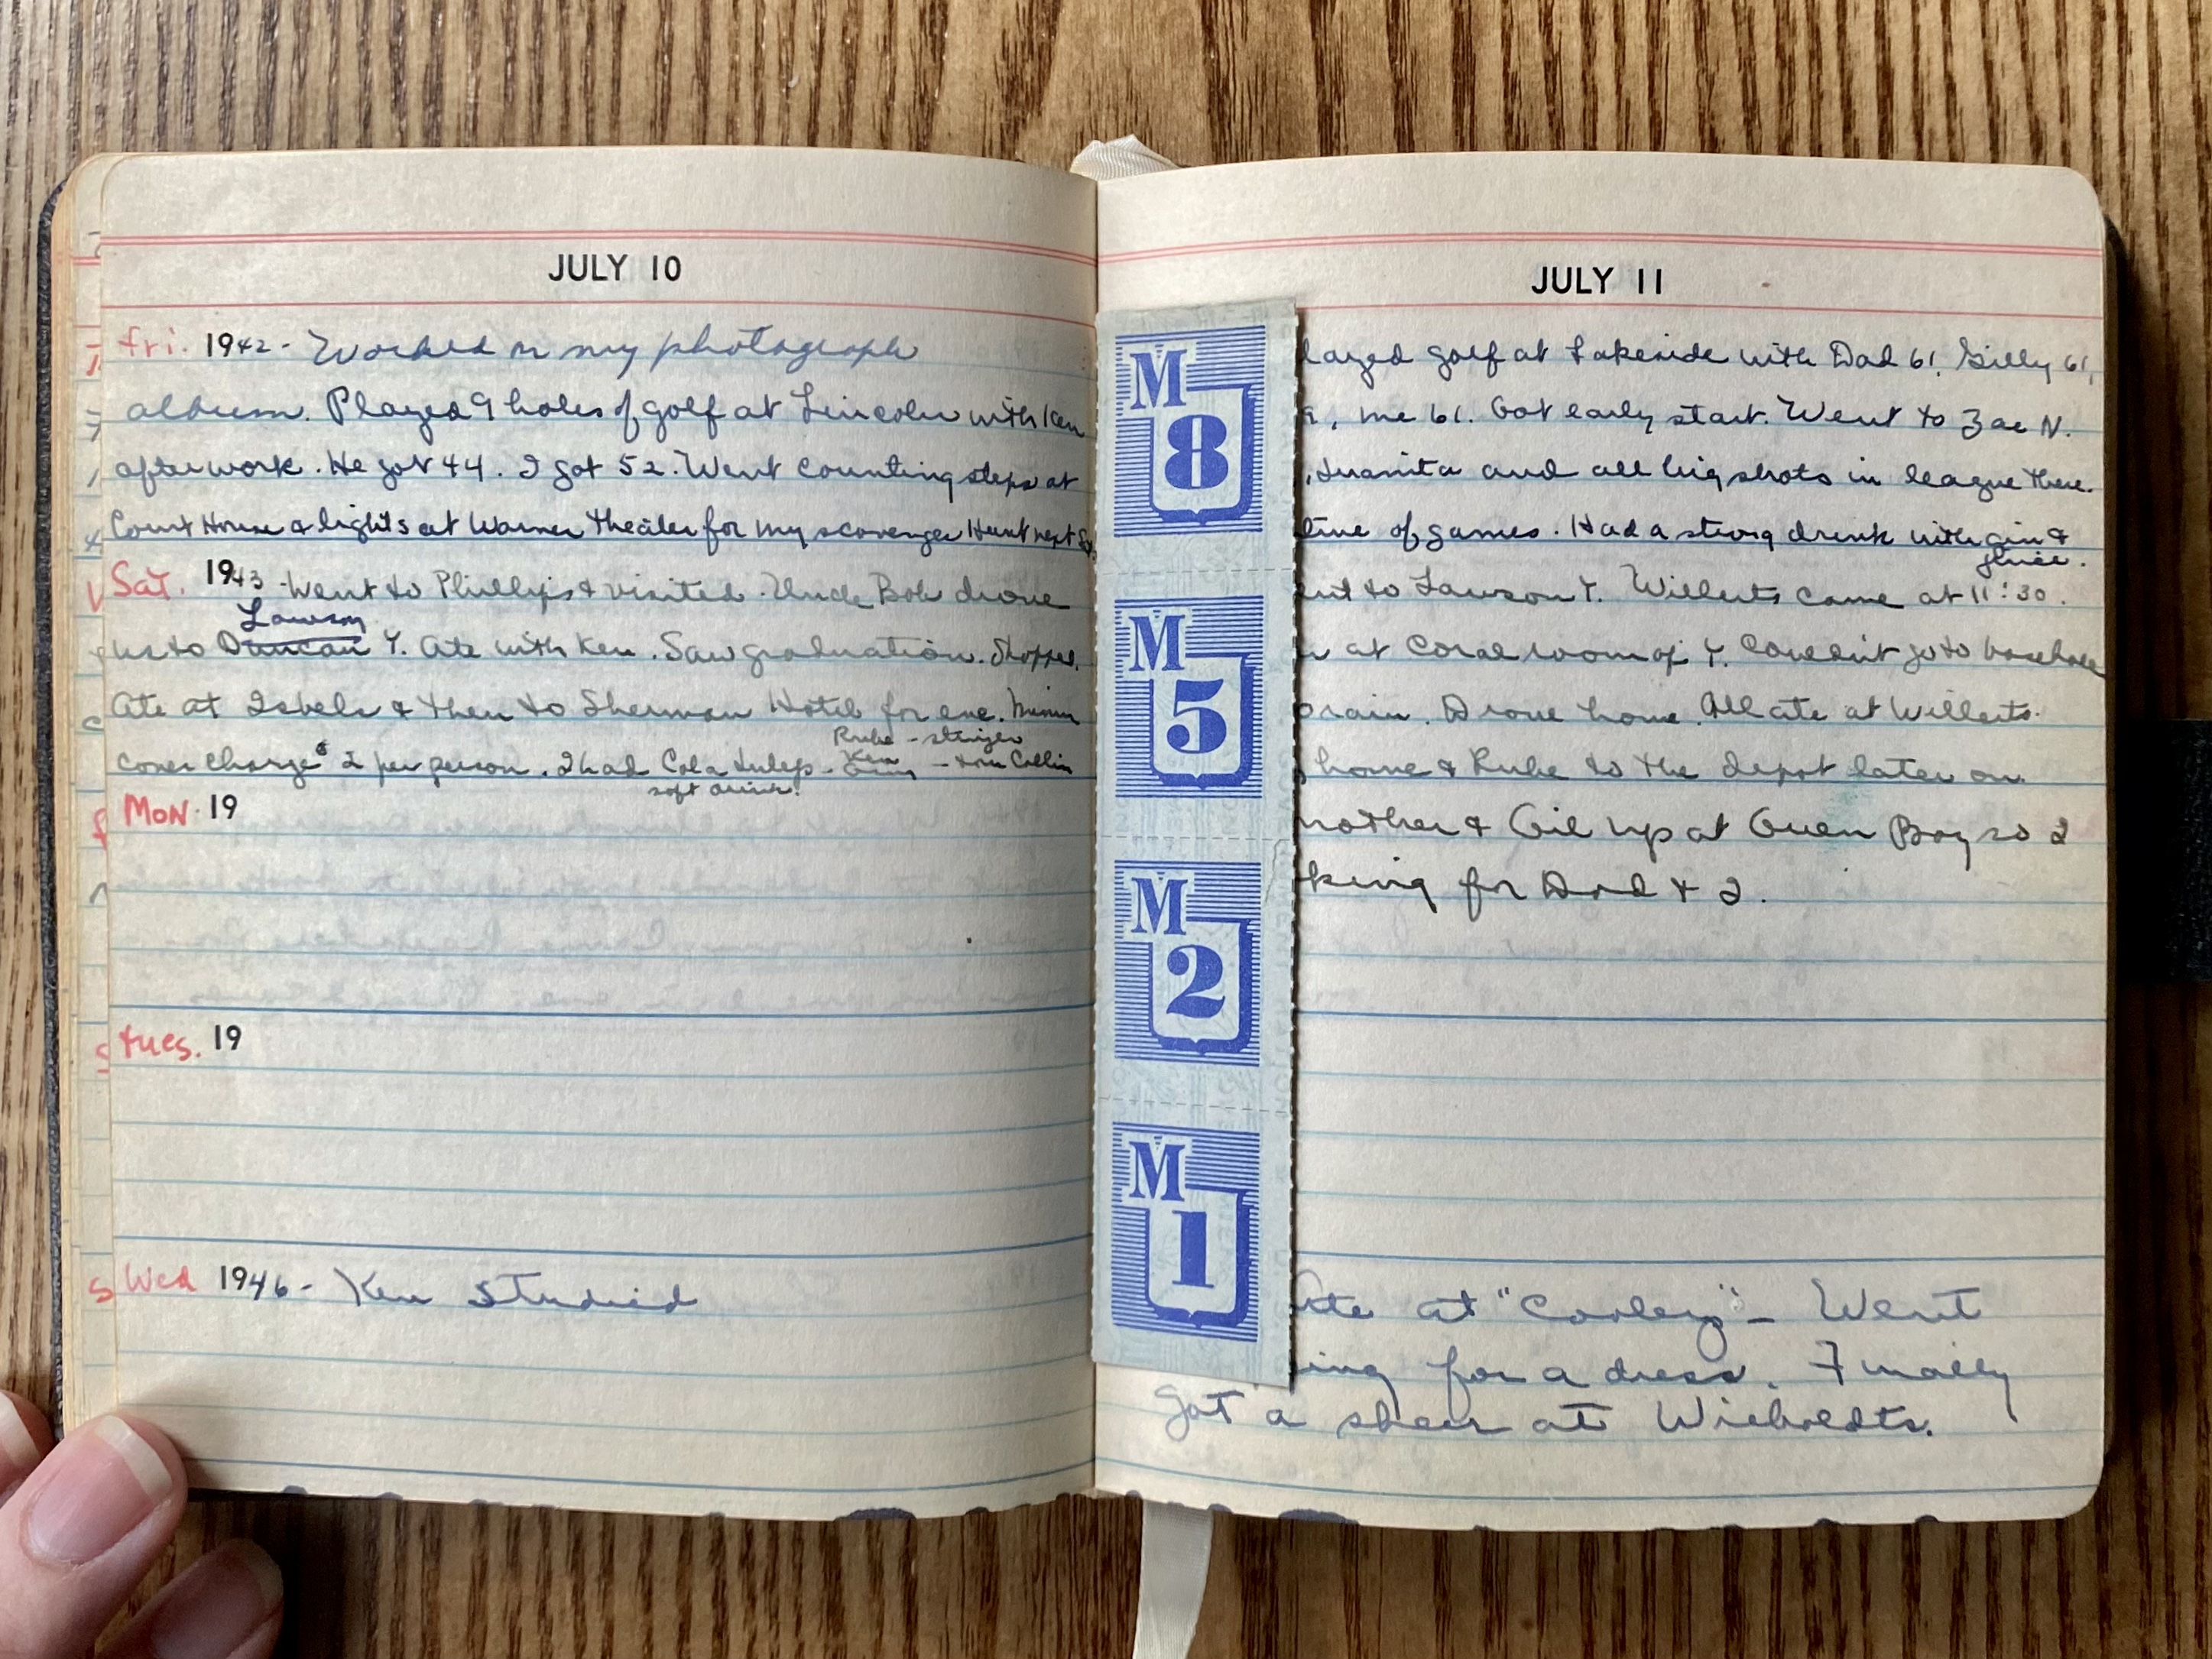 JULY 10
Fri. 1942- Worked on my photograph
album. Played 9 holes of golf at Lincoln with Ken
after work. He got 44. I got 52. Went counting steps at
Court House & lights at Warner Theater for my scavenger Hunt next
Sat. 1943 -Went to Phillip's & visited. Uncle Bob drove
Lawson
us to Duncan Y. Ate with Ken. Saw graduation. Shopped.
Ate at Isbels & then to Sherman Hotel for eve.
Rube -
cover charge $2 per person. I had Cola Juleps - Ken - tom Collin
soft drink.
Mon. 19
tues. 19
Wed 1946- Ken studied
JULY 11
layed golf at Lakeside with Dad 61, Gilly 61,
, me 61. Got early start. Went to N.
, Juanita and all big shots in league there.
time of games. Had a strong drink with gin &
juice.
ent to Lawson Y. Willerts came at 11:30.
at Coral room of Y. Couldn't go to baseball
rain. Drove home. All ate at Willerts.
home & Rube to the depot later on.
mother & Gil up at Green Bay so I
king for Dad & I.
Ate at "Cooley" - Went
ing for a dress. Finally
got a sheer at Wieboldts.
M
8
M
5
M
2
M
1